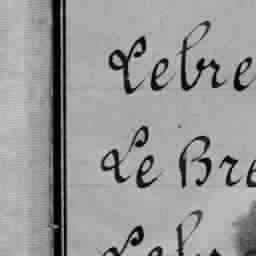 Lebre
Le Bre
Lebr